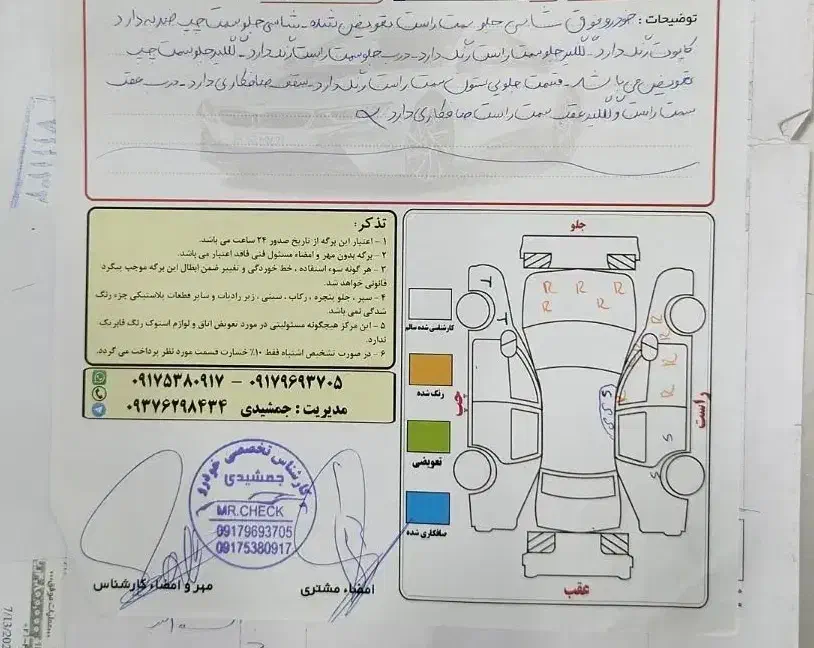 توضیحات : خودرو فوق شاسی جلو سمت راست تعویض شده - شاسی جلو سمت چپ ضربه دارد
کاپوت رنگ دارد - گلگیر جلو سمت راست رنگ دارد - درب جلو سمت راست رنگ دارد - گلگیر جلو سمت چپ
تعویض می باشد - قسمت جلویی ستون سمت راست رنگ دارد - سقف صافکاری دارد - درب عقب
سمت راست و گلگیر عقب سمت راست صافکاری دارد
تذکر :
۱ - اعتبار این برگه از تاریخ صدور ۲۴ ساعت می باشد.
۲ - برگه بدون مهر و امضاء مسئول فنی فاقد اعتبار می باشد.
۳ - هر گونه سوء استفاده ، خط خوردگی و تغییر ضمن ابطال این برگه موجب پیگرد
قانونی خواهد شد.
۴ - سپر ، جلو پنجره ، رکاب ، سینی ، زیر رادیات و سایر قطعات پلاستیکی جزء رنگ
شدگی نمی باشد.
۵ - این مرکز هیچگونه مسئولیتی در مورد تعویض اتاق و لوازم استوک رنگ فابریک
ندارد.
۶ - در صورت تشخیص اشتباه فقط ۱۰٪ خسارت قسمت مورد نظر پرداخت می گردد.
۰۹۱۷۹۶۹۳۷۰۵ - ۰۹۱۷۵۳۸۰۹۱۷
مدیریت : جمشیدی ۰۹۳۷۶۲۹۸۴۳۴
کارشناس تخصصی خودرو
جمشیدی
MR.CHECK
09179693705
09175380917
مهر و امضاء کارشناس
امضاء مشتری
جلو
کارشناسی شده سالم
رنگ شده
تعویضی
صافکاری شده
چپ
راست
عقب
T
T
R R R
R R
R
R
R R
S
S
S S S